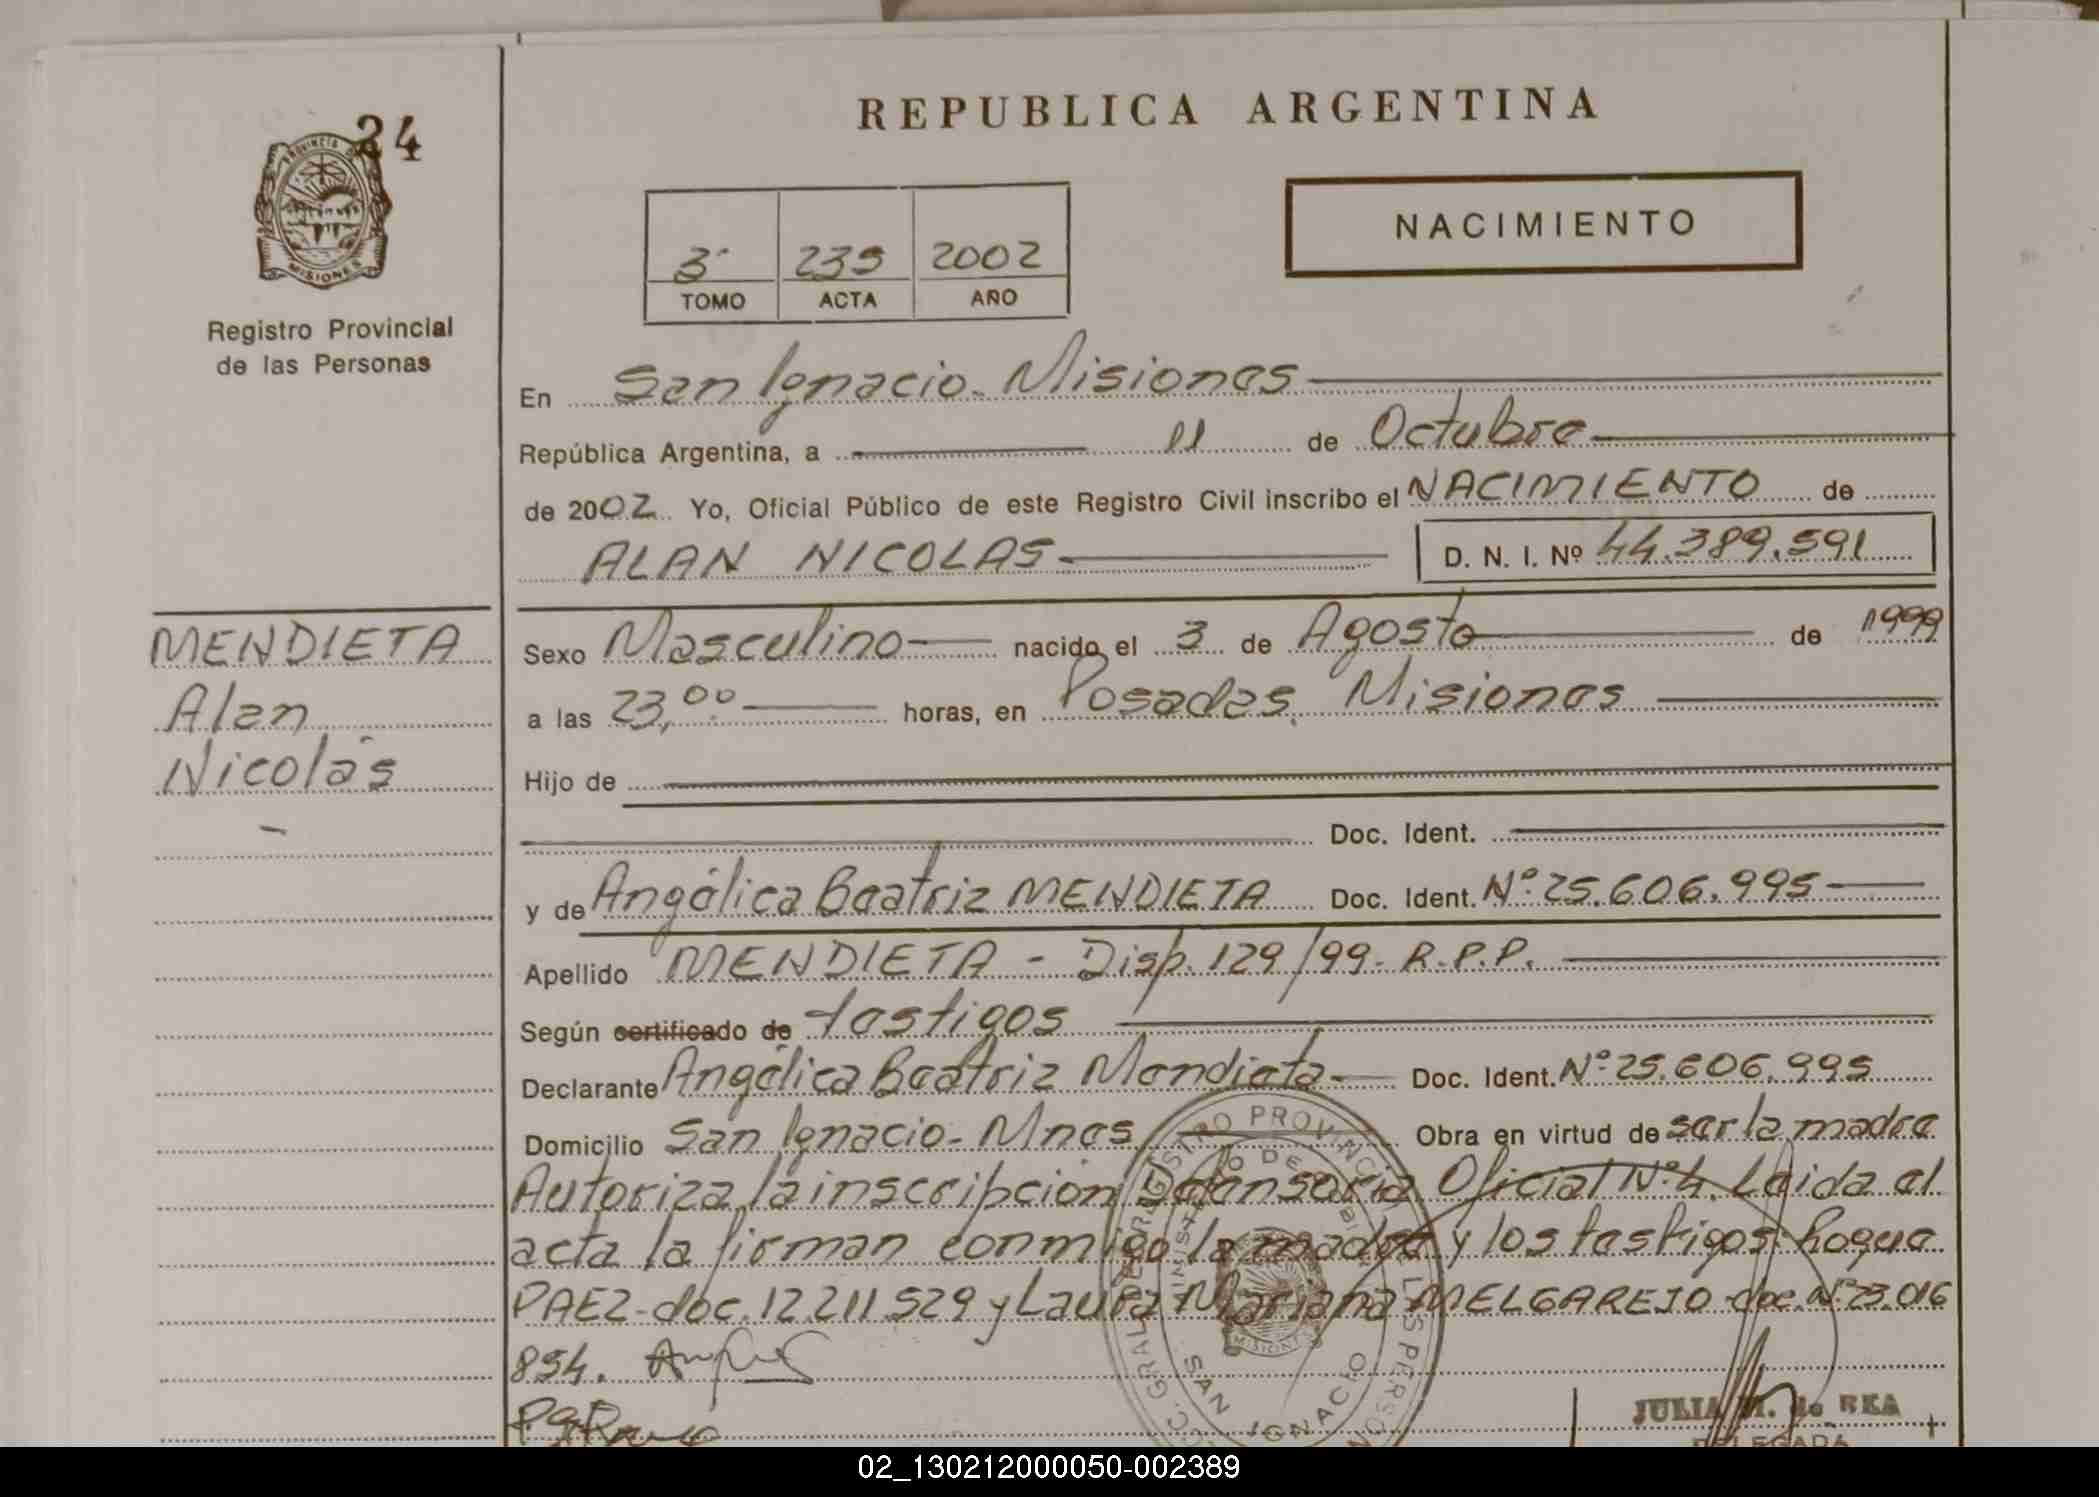 REPUBLICA ARGENTINA
24
PROVINCIA DE
MISIONES
Registro Provincial
de las Personas
NACIMIENTO
3º 239 2002
TOMO ACTA AÑO
En San Ignacio - Misiones
República Argentina, a 11 de Octubre
de 2002 Yo, Oficial Público de este Registro Civil inscribo el NACIMIENTO de
ALAN NICOLAS D. N. I. Nº 44.389.591
MENDIETA
Alan
Nicolás
Sexo Masculino nacido el 3 de Agosto de 1999
a las 23,00 horas, en Posadas, Misiones
Hijo de
Doc. Ident.
y de Angélica Beatriz MENDIETA Doc. Ident. Nº 25.606.995
Apellido MENDIETA - Disp. 129/99 - R.P.P.
Según certificado de testigos
Declarante Angélica Beatriz Mendieta Doc. Ident. Nº 25.606.995
Domicilio San Ignacio - Mnes Obra en virtud de ser la madre
Autoriza la inscripción Defensoria Oficial Nº 4. Leida el
acta la firman conmigo la madre y los testigos: Roque
PAEZ - doc. 12.211.529 y Laura Mariana MELGAREJO doc. Nº 23.016
854.
SAN IGNACIO
JULIA de REA
DELEGADA
02_130212000050-002389